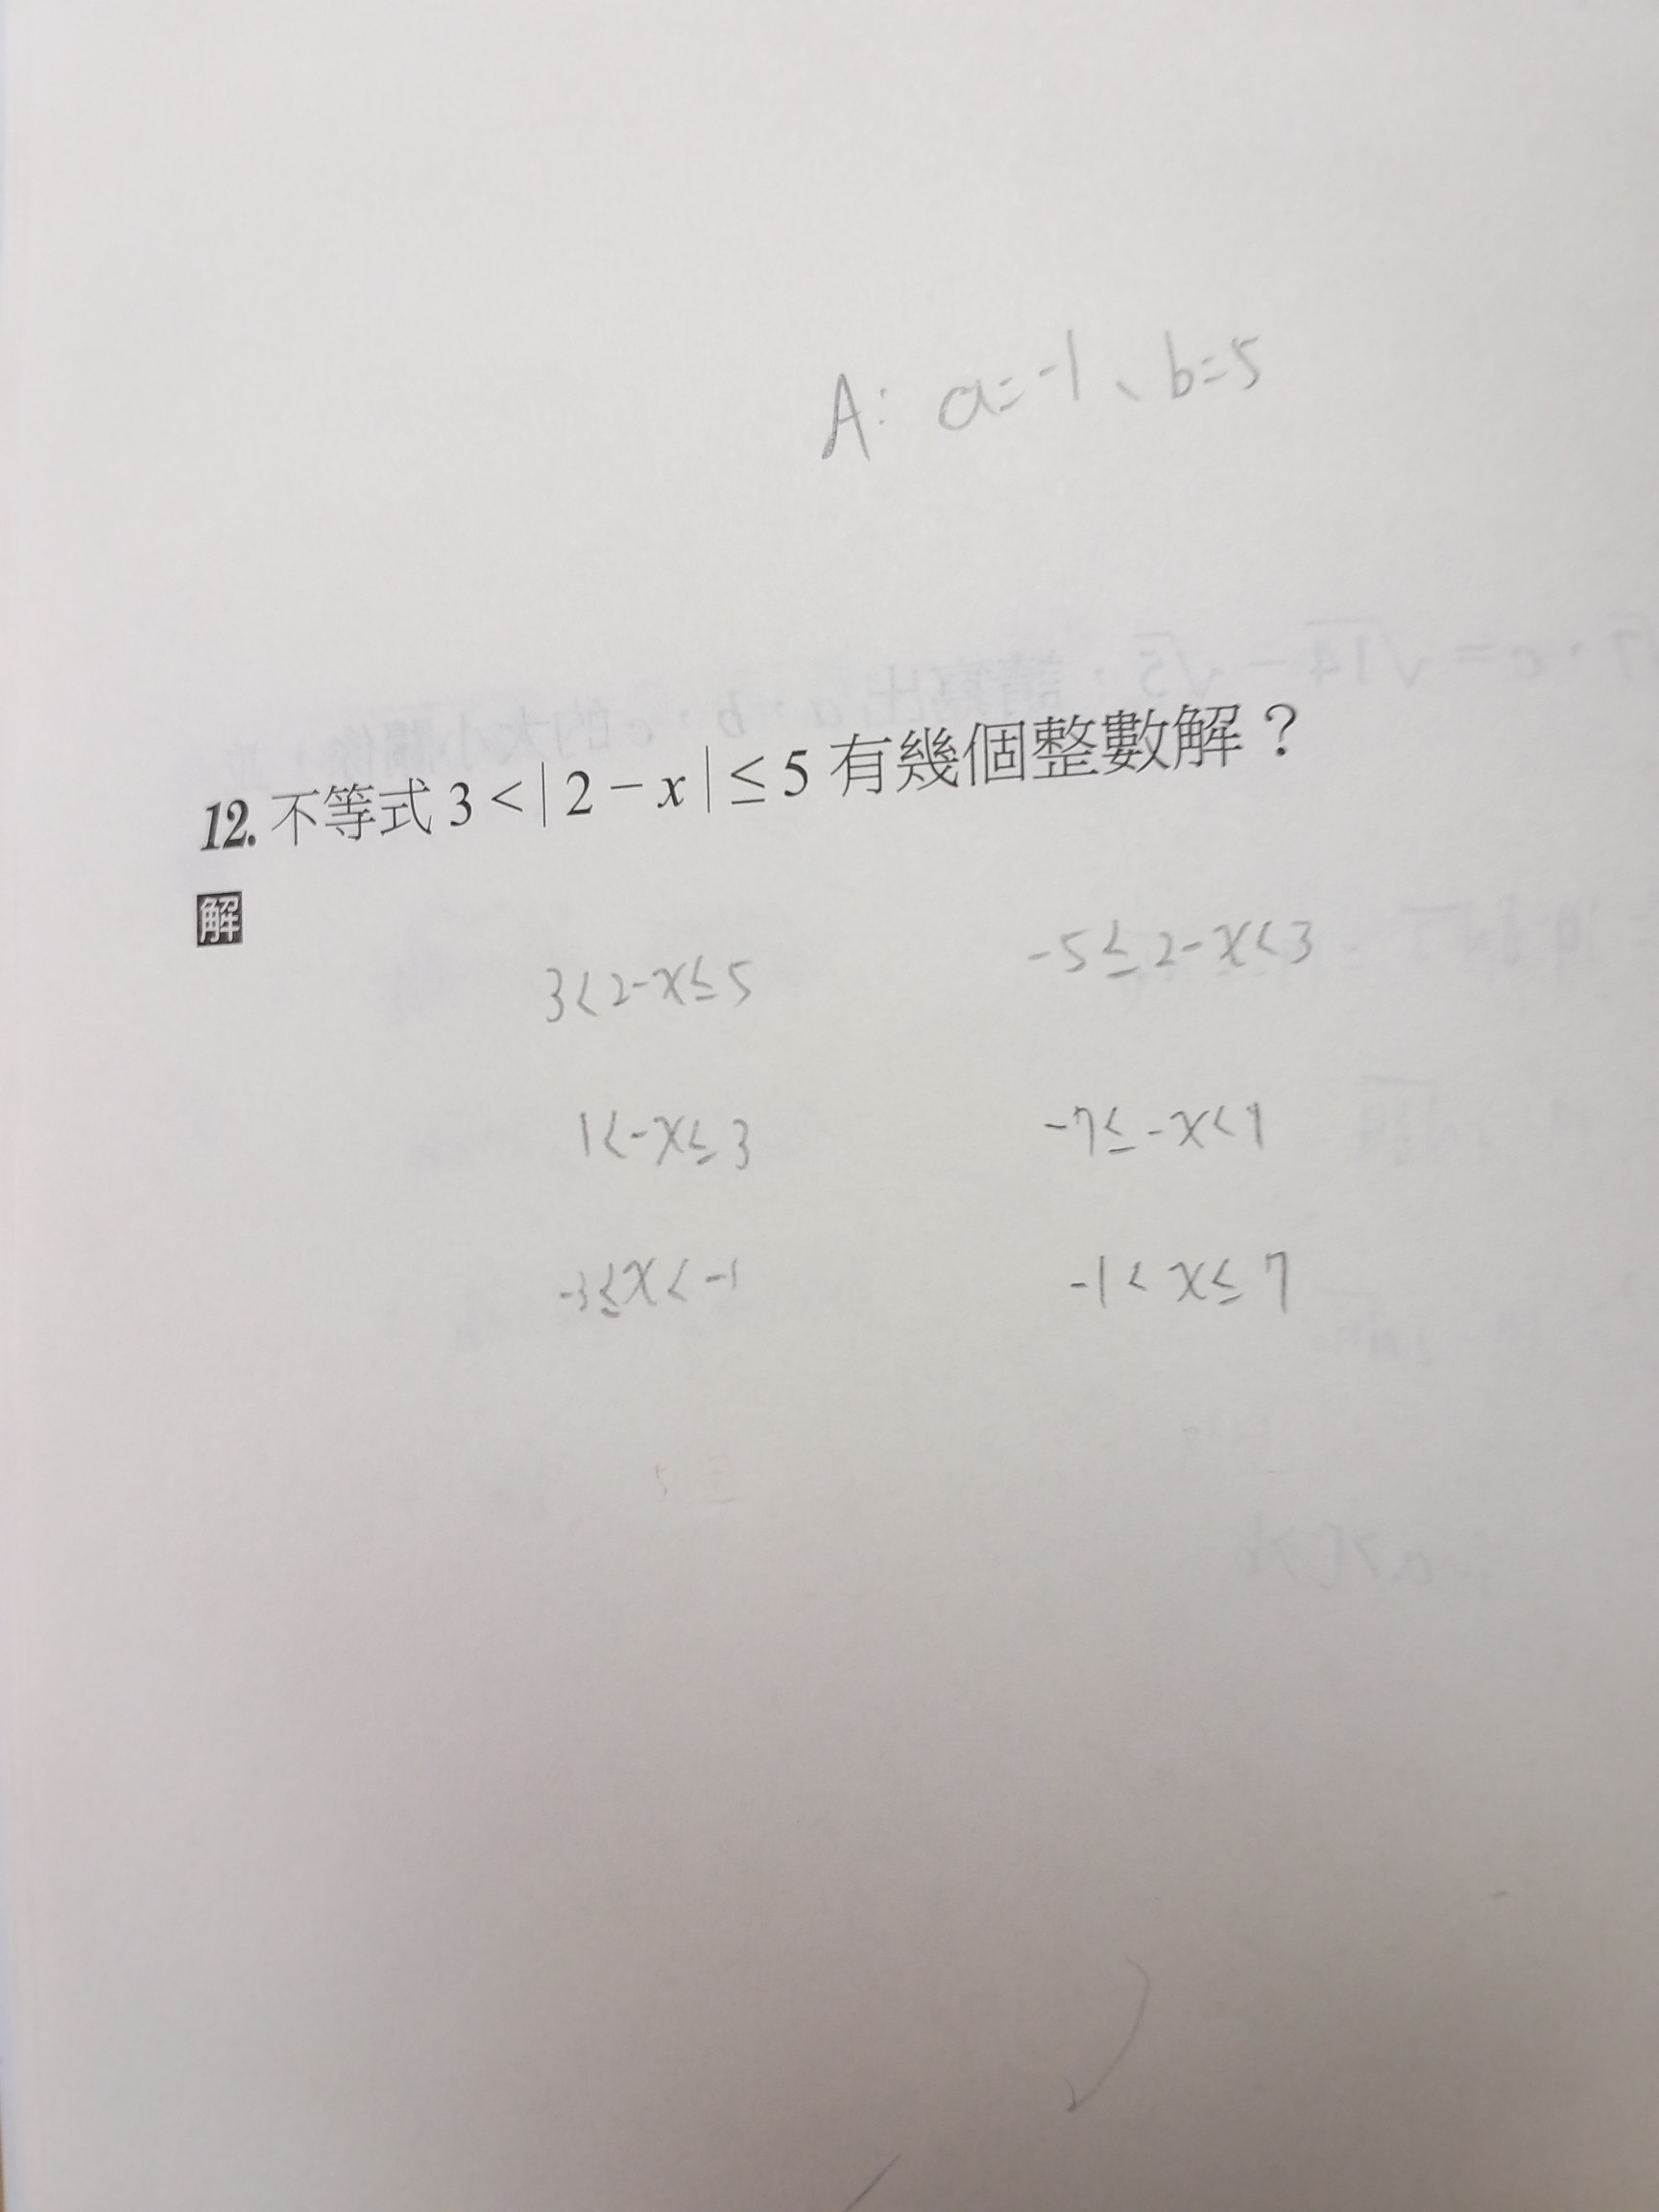 A: a=-1、b=5
12. 不等式 3 < | 2 − x | ≤ 5 有幾個整數解？
解
3<2-x≤5 -5≤2-x<3
1<-x≤3 -7≤-x<1
-3≤x<-1 -1<x≤7